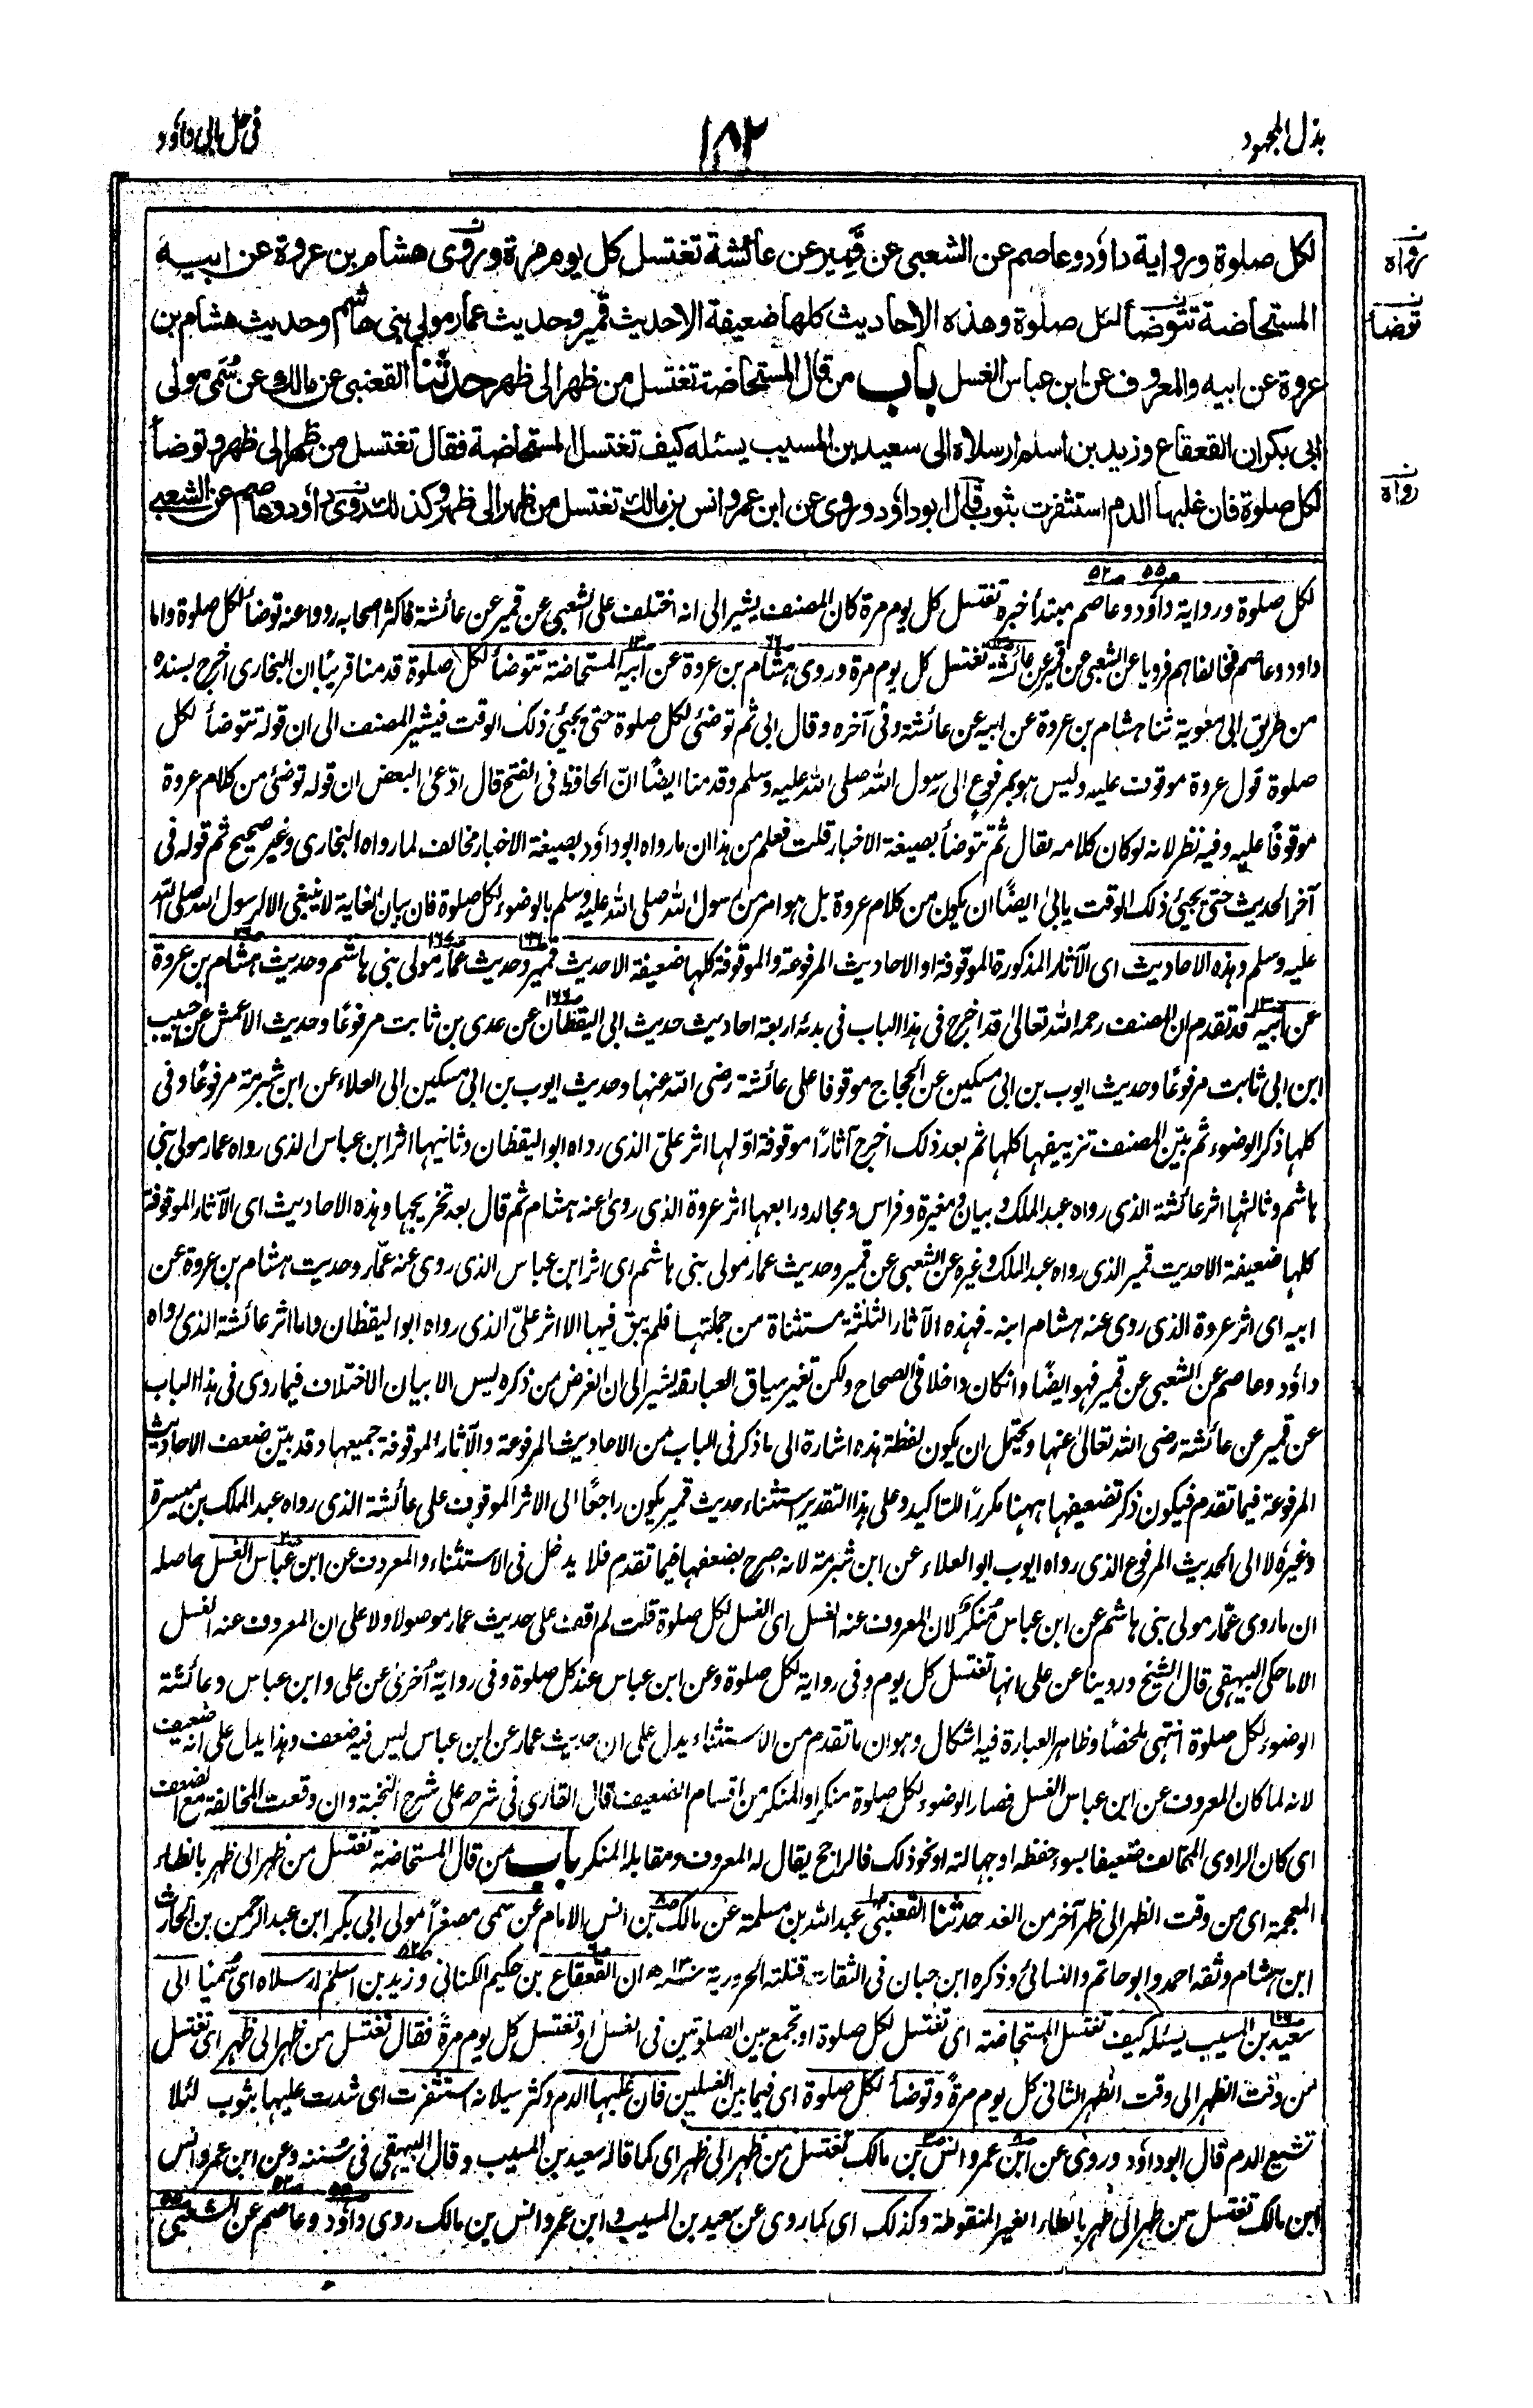 بذل المجهود
١٨٢
في حل ابي داؤد
لكل صلوة ورواية داؤد وعاصم عن الشعبى عن قمير عن عائشة تغتسل كل يوم مرة وروى هشام بن عروة عن ابيه
المستحاضة تتوضأ لكل صلوة وهذه الاحاديث كلها ضعيفة الاحديث قمير وحديث عمار مولى بنى هاشم وحديث هشام بن
عروة عن ابيه والمعروف عن ابن عباس الغسل باب من قال المستحاضة تغتسل من ظهر الى ظهر حدثنا القعنبى عن مالك عن سُمَى مولى
ابى بكر ان القعقاع وزيد بن اسلم ارسلاه الى سعيد بن المسيب يسئله كيف تغتسل المستحاضة فقال تغتسل من ظهر الى ظهر وتوضأ
لكل صلوة فان غلبها الدم استثفرت بثوب قال ابو داؤد وروى عن ابن عمر وانس بن مالك تغتسل من ظهر الى ظهر وكذلك روى داؤد وعاصم عن الشعبى
رواه
توضأ
رواه
لكل صلوة ورواية داؤد وعاصم مبتدأ خبره تغتسل كل يوم مرة كان المصنف يشير الى انه اختلف على الشعبي عن قمير عن عائشة فاكثر اصحابه رووا عنه توضأ لكل صلوة واما
داود وعاصم فخالفاهم فرويا عن الشعبي عن قمير عن عائشة تغتسل كل يوم مرة وروى هشام بن عروة عن ابيه المستحاضة تتوضأ لكل صلوة قدمنا قريبًا ان البخاري اخرج بسنده
من طريق ابى معوية ثنا هشام بن عروة عن ابيه عن عائشة وفى آخره وقال ابى ثم توضئى لكل صلوة حتى يجيئ ذلك الوقت فيشير المصنف الى ان قوله تتوضأ لكل
صلوة قول عروة موقوف عليه وليس هو بمرفوع الى رسول الله صلى الله عليه وسلم وقدمنا ايضًا انّ الحافظ فى الفتح قال ادّعىٰ البعض ان قوله توضئى من كلام عروة
موقوفًا عليه وفيه نظر لانه لو كان كلامه لقال ثم تتوضأ بصيغة الاخبار قلت فعلم من هذا ان ما رواه ابوداؤد بصيغة الاخبار مخالف لما رواه البخارى وغير صحيح ثم قوله فى
آخر الحديث حتى يجيئ ذلك الوقت يابىٰ ايضًا ان يكون من كلام عروة بل هو امر من رسول الله صلى الله عليه وسلم بالوضوء لكل صلوة فان بيان الغاية لا ينبغى الا لرسول الله صلى الله
عليه وسلم وهذه الاحاديث اى الآثار المذكورة الموقوفة او الاحاديث المرفوعة والموقوفة كلها ضعيفة الاحديث قمير وحديث عمار مولى بنى هاشم وحديث هشام بن عروة
عن ابيه قد تقدم ان المصنف رحمه الله تعالىٰ قد اخرج فى هذا الباب فى بدئه اربعة احاديث حديث ابى اليقظان عن عدى بن ثابت مرفوعًا وحديث الاعمش عن حبيب
ابن ابى ثابت مرفوعًا وحديث ايوب بن ابى مسكين عن الحجاج موقوفا على عائشة رضى الله عنها وحديث ايوب بن ابى مسكين ابى العلاء عن ابن شبرمة مرفوعًا وفى
كلها ذكر الوضوء ثم بيّن المصنف تزييفها كلها ثم بعد ذلك اخرج آثارًا موقوفة اوّلها اثر علىّ الذى رواه ابو اليقظان وثانيها اثر ابن عباس الذى رواه عمار مولى بنى
هاشم وثالثها اثر عائشة الذى رواه عبد الملك وبيان ومغيرة وفراس ومجالد ورابعها اثر عروة الذى روىٰ عنه هشام ثم قال بعد تخريجها وهذه الاحاديث اى الآثار الموقوفة
كلها ضعيفة الاحديث قمير الذى رواه عبد الملك وغيره عن الشعبى عن قمير وحديث عمار مولى بنى هاشم اى اثر ابن عباس الذى روى عنه عمّار وحديث هشام بن عروة عن
ابيه اى اثر عروة الذى روى عنه هشام ابنه۔ فهذه الآثار الثلثة مستثناة من جملتها فلم يبق فيها الا اثر علىّ الذى رواه ابو اليقظان واما اثر عائشة الذى رواه
داؤد وعاصم عن الشعبى عن قمير فهو ايضًا وان كان داخلا فى الصحاح ولكن تغير سياق العبارة يشير الى ان الغرض من ذكره ليس الا بيان الاختلاف فيما روى فى هذا الباب
عن قمير عن عائشة رضى الله تعالىٰ عنها ويحتمل ان يكون لفظة هذه اشارة الى ما ذكر فى الباب من الاحاديث المرفوعة والآثار الموقوفة جميعها وقد بيّن ضعف الاحاديث
المرفوعة فيما تقدم فيكون ذكر تضعيفها ههنا مكررًا للتاكيد وعلى هذا التقدير استثناء حديث قمير يكون راجعًا الى الاثر الموقوف على عائشة الذى رواه عبد الملك بن ميسرة
وغيره لا الى الحديث المرفوع الذى رواه ايوب ابو العلاء عن ابن شبرمة لانه صرح بضعفها فيما تقدم فلا يدخل فى الاستثناء والمعروف عن ابن عباس الغسل حاصله
ان ما روى عمّار مولى بنى هاشم عن ابن عباس مُنكَر لان المعروف عنه الغسل اى الغسل لكل صلوة قلت لم اقف على حديث عمار موصولا ولا على ان المعروف عنه الغسل
الا ما حكى البيهقى قال الشيخ وروينا عن على انها تغتسل كل يوم وفى رواية لكل صلوة وعن ابن عباس عند كل صلوة وفى رواية اُخرىٰ عن على وابن عباس وعائشة
الوضوء لكل صلوة انتهى ملخصًا وظاهر العبارة فيه اشكال وهو ان ما تقدم من الاستثناء يدل على ان حديث عمار عن ابن عباس ليس فيه ضعف وهذا يدل على انه ضعيف
لانه لما كان المعروف عن ابن عباس الغسل فصار الوضوء لكل صلوة منكرا والمنكر من اقسام الضعيف قال القارى فى شرحه على شرح النخبة وان وقعت المخالفة مع الضعف
اى كان الراوى المخالف ضعيفا بسوء حفظه او جهالته او نحو ذلك فالراجح يقال له المعروف ومقابله المنكر باب من قال المستحاضة تغتسل من ظهر الى ظهر بالظاء
المعجمة اى من وقت الظهر الى ظهر آخر من الغد حدثنا القعنبى عبد الله بن مسلمة عن مالك بن انس الامام عن سمى مصغرًا مولى ابى بكر ابن عبد الرحمن بن الحارث
ابن هشام وثقه احمد وابو حاتم والنسائى وذكره ابن حبان فى الثقات قتلته الحرورية سنة ١٣٠ه ان القعقاع بن حكيم الكنانى وزيد بن اسلم ارسلاه اى سُميًا الى
سعيد بن المسيب يسئله كيف تغتسل المستحاضة اى تغتسل لكل صلوة او تجمع بين الصلوتين فى الغسل او تغتسل كل يوم مرةً فقال تغتسل من ظهر الى ظهر اى تغتسل
من وقت الظهر الى وقت الظهر الثانى كل يوم مرةً وتوضأ لكل صلوة اى فيما بين الغسلين فان غلبها الدم وكثر سيلانه استثفرت اى شدت عليها بثوب لئلا
تشيع الدم قال ابوداؤد وروى عن ابن عمر وانس بن مالك تغتسل من ظهر الى ظهر اى كما قاله سعيد بن المسيب وقال البيهقى فى سُننه وعن ابن عمر وانس
ابن مالك تغتسل من طهر الى طهر بالطاء الغير المنقوطة وكذلك اى كما روى عن سعيد بن المسيب وابن عمر وانس بن مالك روى داؤد وعاصم عن الشعبى